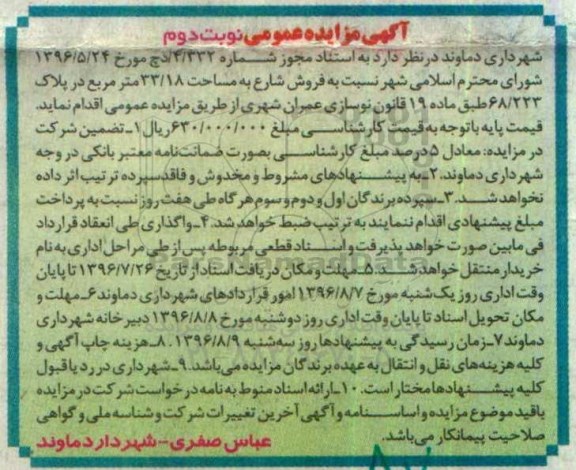 آگهی مزایده عمومی نوبت دوم
شهرداری دماوند در نظر دارد به استناد مجوز شماره ۴/۳۳۲/دچ مورخ ۱۳۹۶/۵/۲۴
شورای محترم اسلامی شهر نسبت به فروش شارع به مساحت ۳۳/۱۸ متر مربع در پلاک
۶۸/۲۲۳ طبق ماده ۱۹ قانون نوسازی عمران شهری از طریق مزایده عمومی اقدام نماید.
قیمت پایه با توجه به قیمت کارشناسی مبلغ ۶۳۰/۰۰۰/۰۰۰ ریال ۱ـ تضمین شرکت
در مزایده: معادل ۵ درصد مبلغ کارشناسی بصورت ضمانت‌نامه معتبر بانکی در وجه
شهرداری دماوند. ۲ـ به پیشنهادهای مشروط و مخدوش و فاقد سپرده ترتیب اثر داده
نخواهد شد. ۳ـ سپرده برندگان اول و دوم و سوم هرگاه طی هفت روز نسبت به پرداخت
مبلغ پیشنهادی اقدام ننمایند به ترتیب ضبط خواهد شد. ۴ـ واگذاری طی انعقاد قرارداد
فی مابین صورت خواهد پذیرفت و اسناد قطعی مربوطه پس از طی مراحل اداری به نام
خریدار منتقل خواهد شد. ۵ـ مهلت و مکان دریافت اسناد از تاریخ ۱۳۹۶/۷/۲۶ تا پایان
وقت اداری روز یک‌شنبه مورخ ۱۳۹۶/۸/۷ امور قراردادهای شهرداری دماوند ۶ـ مهلت و
مکان تحویل اسناد تا پایان وقت اداری روز دوشنبه مورخ ۱۳۹۶/۸/۸ دبیرخانه شهرداری
دماوند ۷ـ زمان رسیدگی به پیشنهادها روز سه‌شنبه ۱۳۹۶/۸/۹. ۸ـ هزینه چاپ آگهی و
کلیه هزینه‌های نقل و انتقال به عهده برندگان مزایده می‌باشد. ۹ـ شهرداری در رد یا قبول
کلیه پیشنهادها مختار است. ۱۰ـ ارائه اسناد منوط به نامه درخواست شرکت در مزایده
با قید موضوع مزایده و اساسنامه و آگهی آخرین تغییرات شرکت و شناسه ملی و گواهی
صلاحیت پیمانکار می‌باشد.
عباس صفری - شهردار دماوند